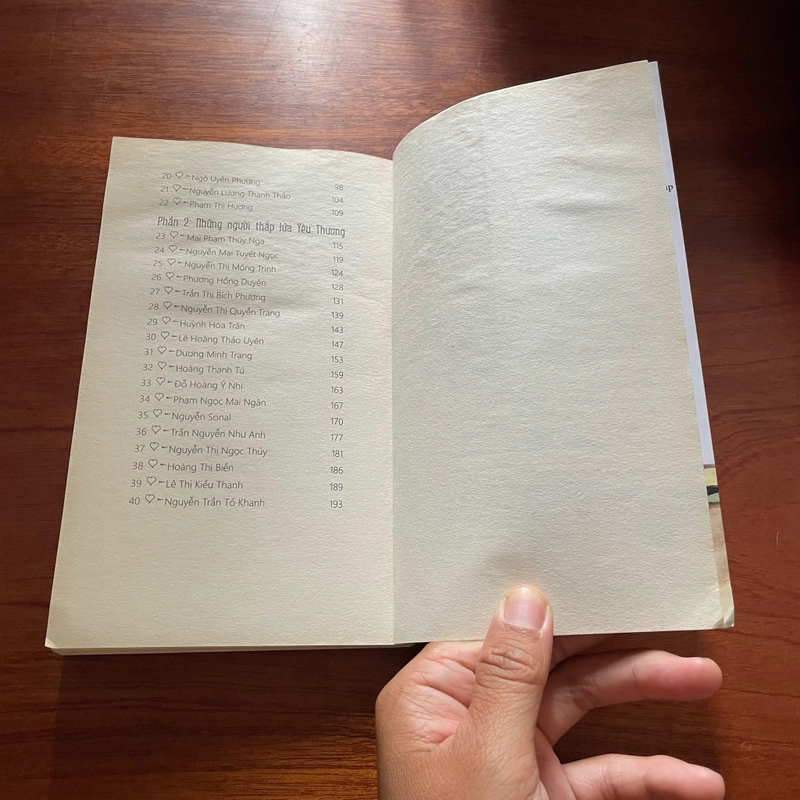 20 ♡ Ngô Uyên Phương 98
21 ♡ Nguyễn Lương Thanh Thảo 104
22 ♡ Phạm Thị Hương 109
Phần 2: Những người thắp lửa Yêu Thương
23 ♡ Mai Phạm Thúy Nga 115
24 ♡ Nguyễn Mai Tuyết Ngọc 119
25 ♡ Nguyễn Thị Mộng Trinh 124
26 ♡ Phương Hồng Duyên 128
27 ♡ Trần Thị Bích Phượng 131
28 ♡ Nguyễn Thị Quyến Trang 139
29 ♡ Huỳnh Hòa Trân 143
30 ♡ Lê Hoàng Thảo Uyên 147
31 ♡ Dương Minh Trang 153
32 ♡ Hoàng Thanh Tú 159
33 ♡ Đỗ Hoàng Ý Nhi 163
34 ♡ Phạm Ngọc Mai Ngân 167
35 ♡ Nguyễn Sonal 170
36 ♡ Trần Nguyễn Như Anh 177
37 ♡ Nguyễn Thị Ngọc Thủy 181
38 ♡ Hoàng Thị Biển 186
39 ♡ Lê Thị Kiều Thanh 189
40 ♡ Nguyễn Trần Tố Khanh 193